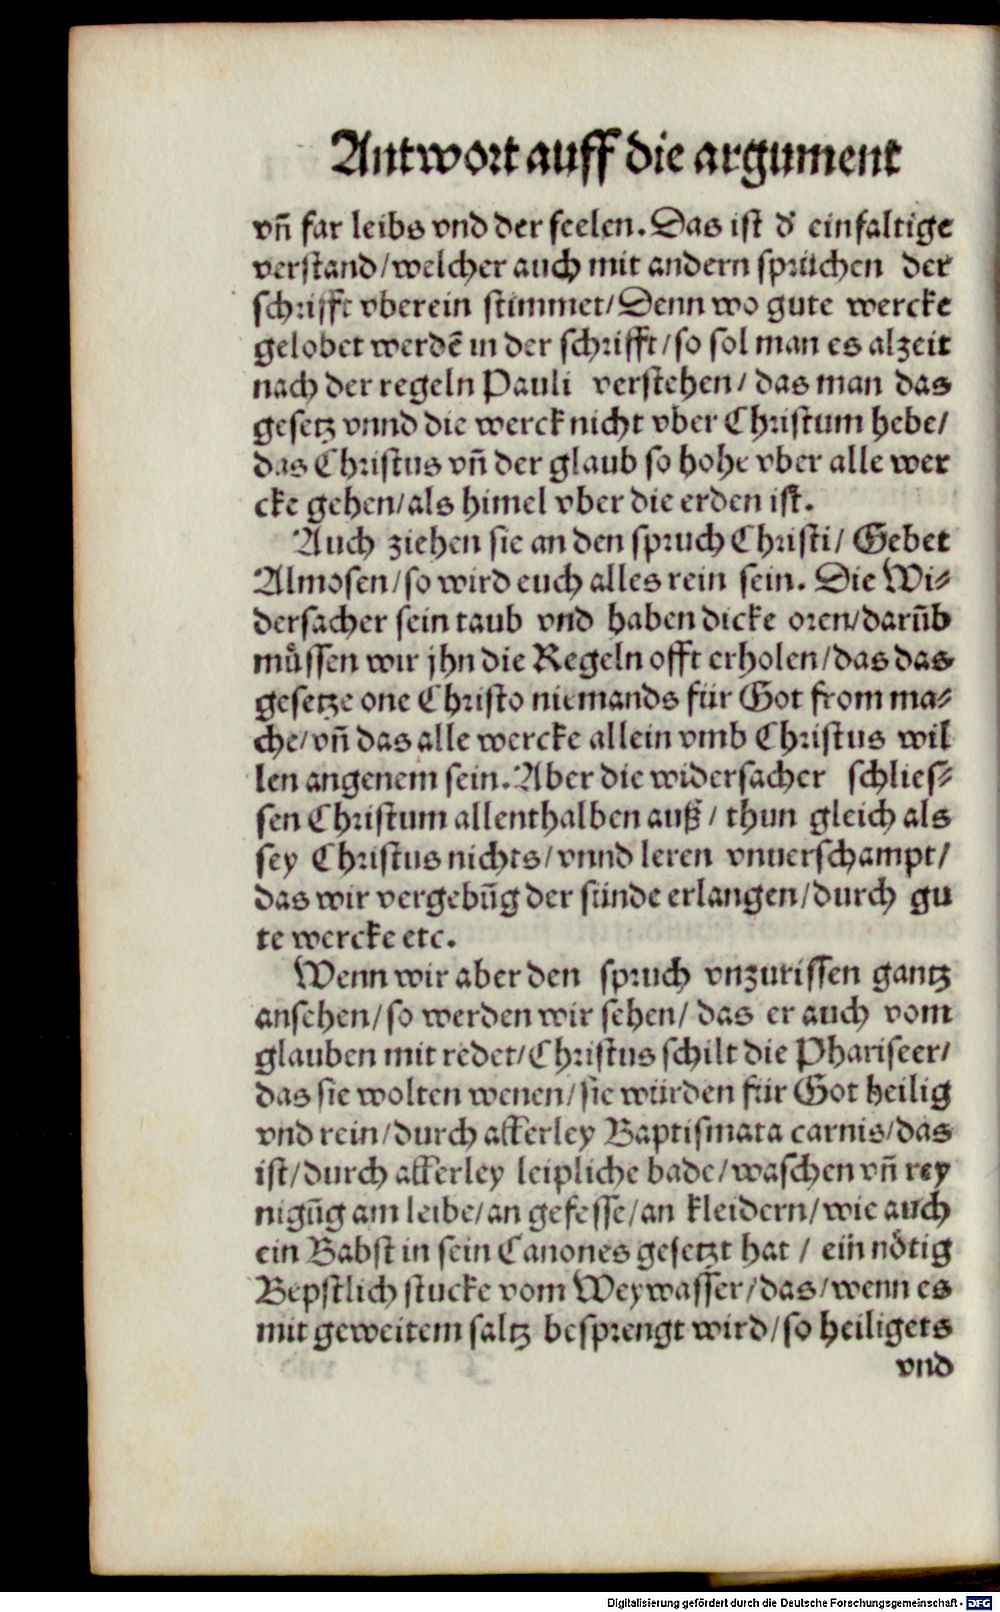 Antwort auff die argument
vn̄ far leibs vnd der seelen. Das ist d' einfaltige
verstand/welcher auch mit andern sprüchen der
schrifft vberein stimmet/Denn wo gute wercke
gelobet werdē in der schrifft/so sol man es alzeit
nach der regeln Pauli verstehen/das man das
gesetz vnnd die werck nicht vber Christum hebe/
das Christus vn̄ der glaub so hohe vber alle wer
cke gehen/als himel vber die erden ist.
Auch ziehen sie an den spruch Christi/Gebet
Almosen/so wird euch alles rein sein. Die Wi⸗
dersacher sein taub vnd haben dicke oren/darūb
müssen wir jhn die Regeln offt erholen/das das
gesetze one Christo niemands für Got from ma⸗
che/vn̄ das alle wercke allein vmb Christus wil
len angenem sein. Aber die widersacher schlies⸗
sen Christum allenthalben auß/thun gleich als
sey Christus nichts/vnnd leren vnuerschampt/
das wir vergebūg der sünde erlangen/durch gu
te wercke etc.
Wenn wir aber den spruch vnzurissen gantz
ansehen/so werden wir sehen/das er auch vom
glauben mit redet/Christus schilt die Phariseer/
das sie wolten wenen/sie würden für Got heilig
vnd rein/durch allerley Baptismata carnis/das
ist/durch allerley leipliche bade/waschen vn̄ rey
nigūg am leibe/an gefesse/an kleidern/wie auch
ein Babst in sein Canones gesetzt hat/ein nötig
Bepstlich stucke vom Weywasser/das/wenn es
mit geweitem saltz besprengt wird/so heiligets
vnd
Digitalisierung gefördert durch die Deutsche Forschungsgemeinschaft - DFG